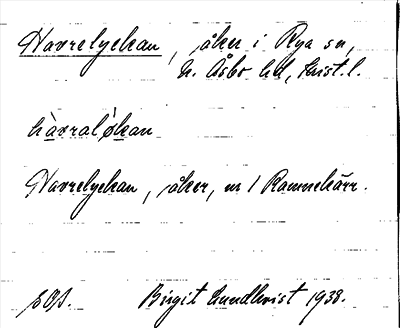 Havrelyckan, åker i Rya sn,
N. Åsbo hd, Krist. l.
hàvralẏkan
Havrelyckan, åker, nr 1 Ramnekärr.
Birgit Lundkvist 1938.